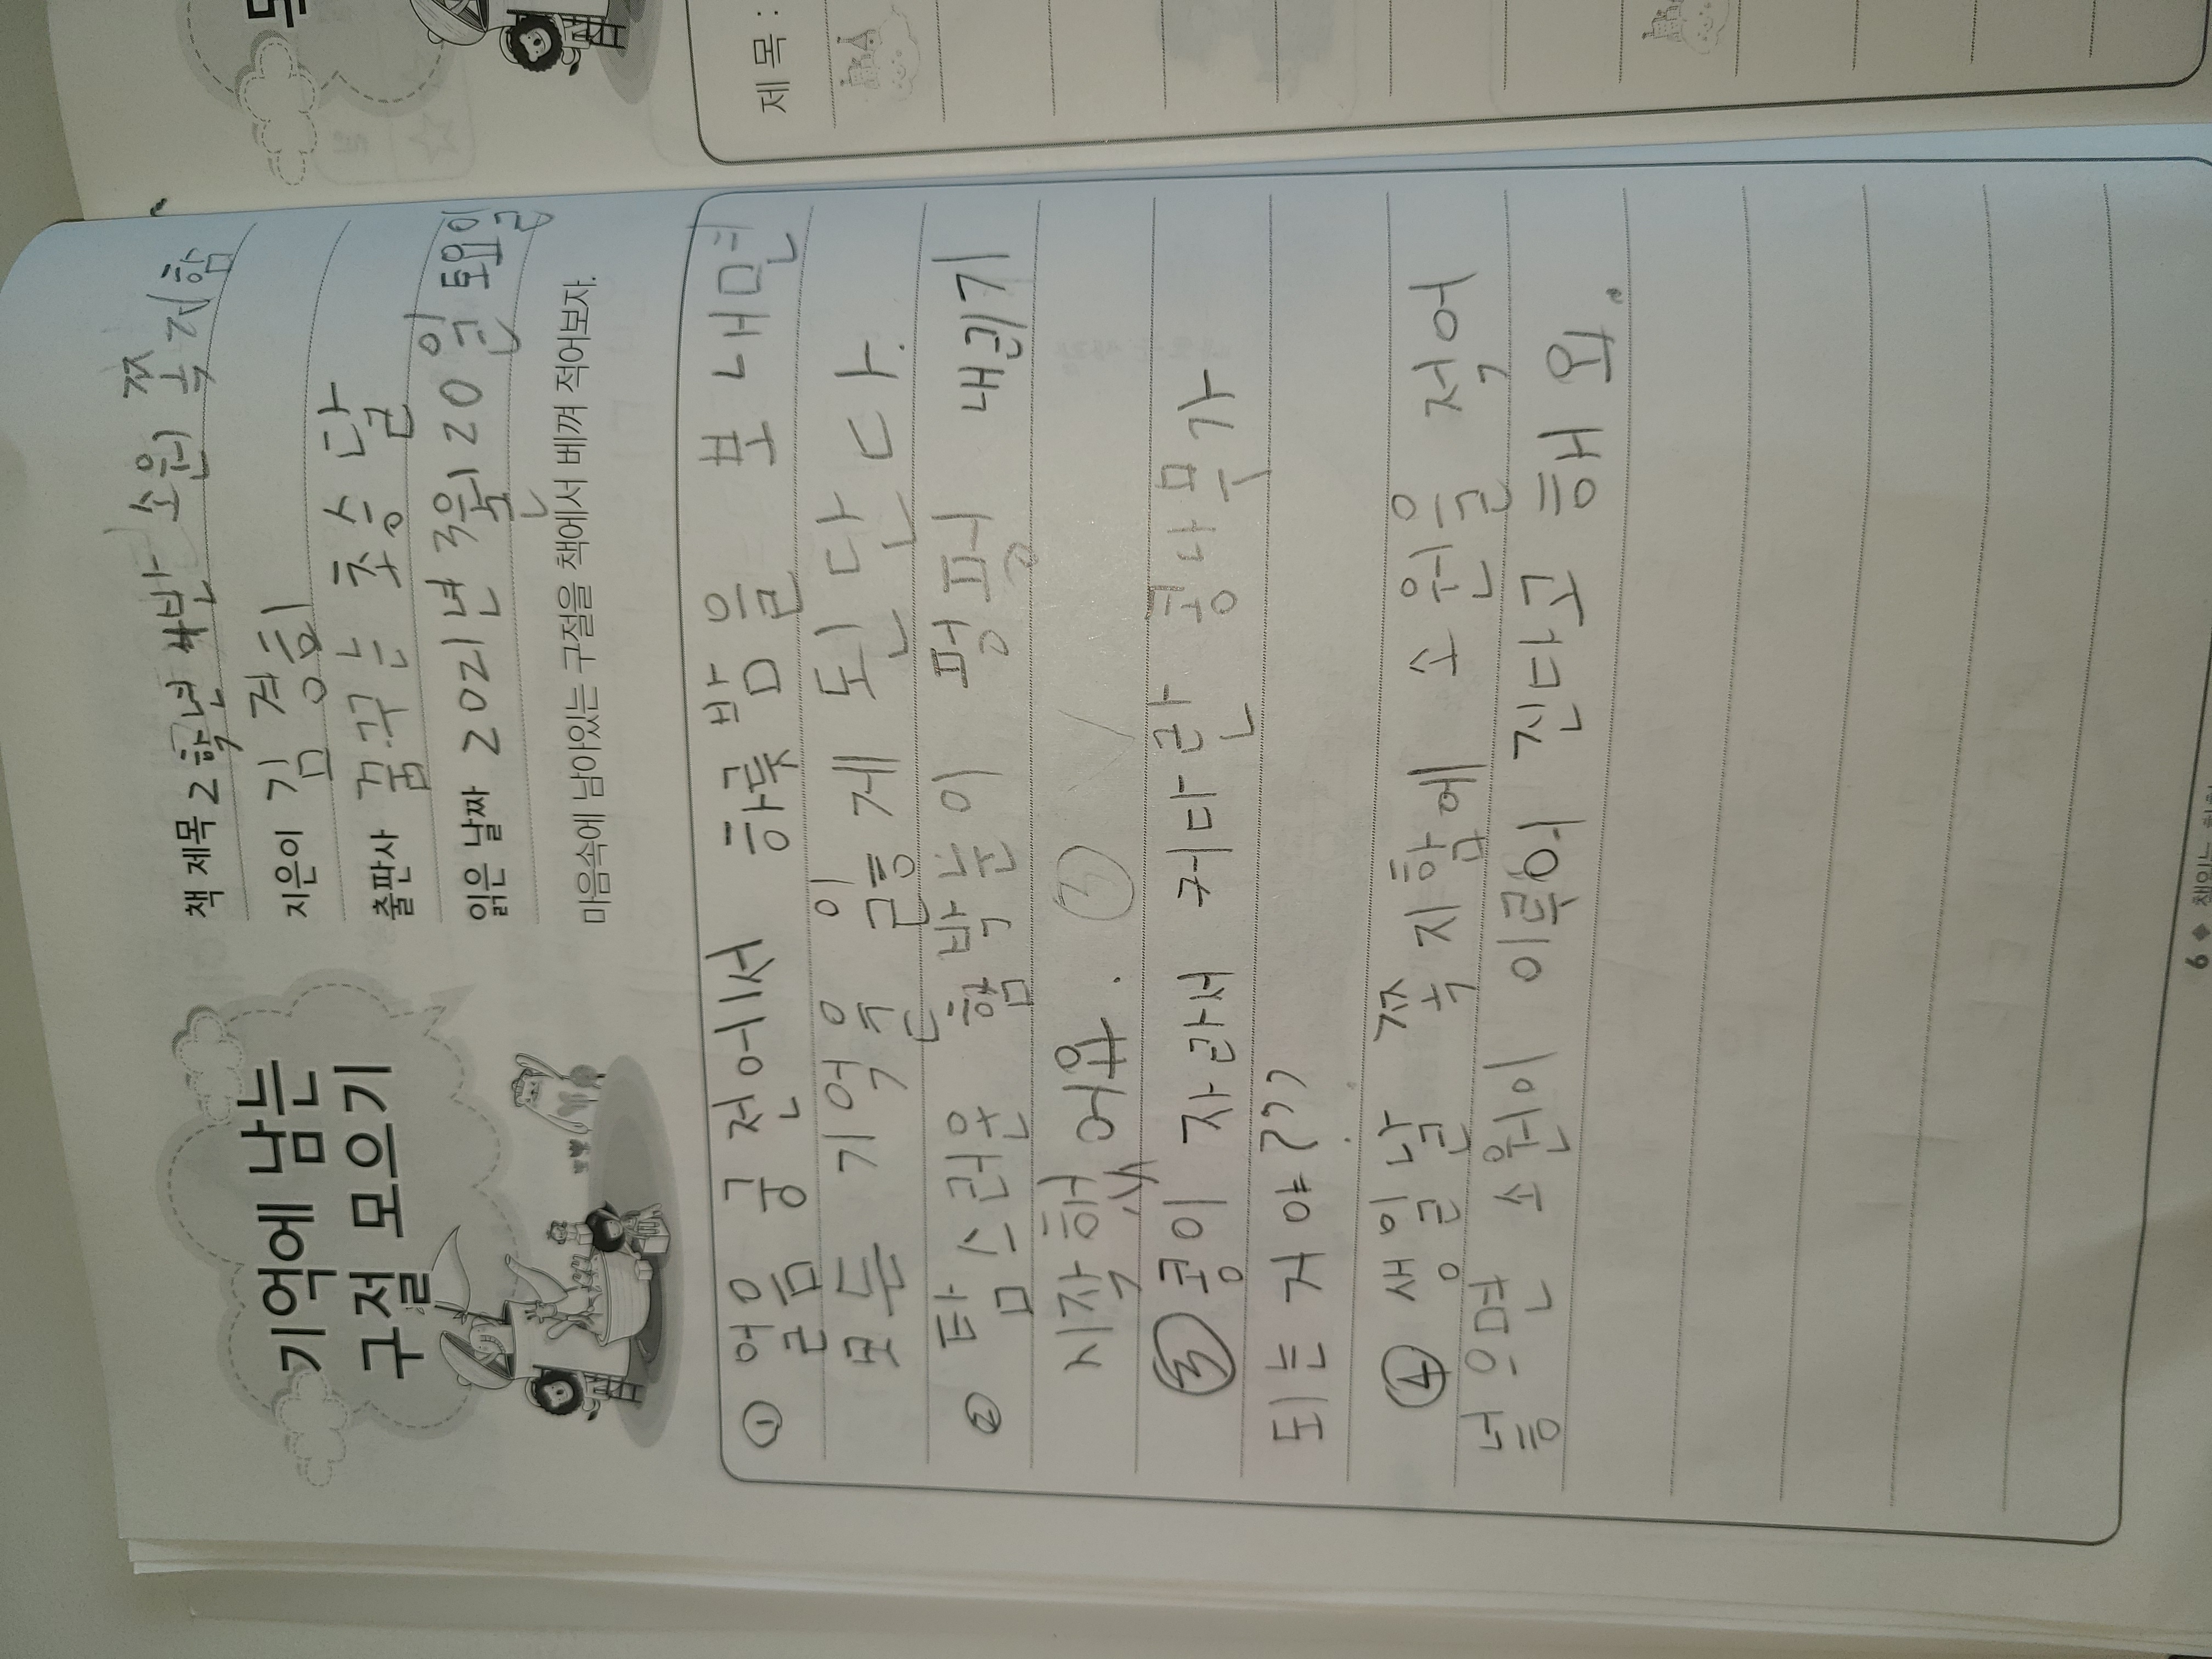 기억에 남는
구절 모으기
책 제목 2학년 4반 소원 쪽지함
지은이 김경희
출판사 꿈꾸는 초승달
읽은 날짜 2021년 3월 20일 토요일
마음속에 남아있는 구절을 책에서 베껴 적어보자.
① 얼음 궁전에서 하룻밤을 보내면
모든 기억을 잃게 된단다.
② 탐스러운 함박눈이 펑펑 내리기
시작했어요. ③
③ 콩이 자라서 커다란 콩나무가
되는 거야?”
④ 생일날 쪽지함에 소원을 적어
넣으면 소원이 이루어 진다고 해요.
6 ◆ 책읽는
제목 :